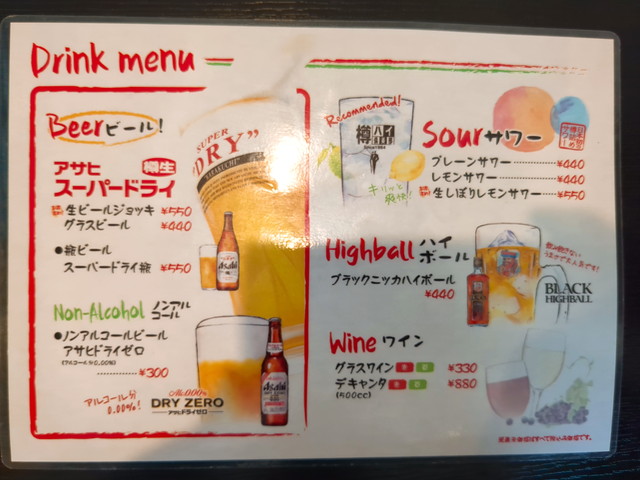 Drink menu
Beer ビール!
アサヒ 樽生
スーパードライ
生ビールジョッキ ¥550
グラスビール ¥440
●瓶ビール
スーパードライ瓶 ¥550
Non-Alcohol ノンアルコール
●ノンアルコールビール
アサヒドライゼロ
(アルコール分0.00%)
¥300
アルコール分
0.00%!
Alc.0.00%
DRY ZERO
アサヒドライゼロ
SUPER
"DRY"
Asahi
Asahi
Recommended!
樽ハイ
キリッと
爽快!!
Sour サワー
プレーンサワー ¥440
レモンサワー ¥440
生しぼりレモンサワー ¥550
Highball ハイボール
ブラックニッカハイボール
¥440
BLACK
HIGHBALL
Wine ワイン
グラスワイン 赤 白 ¥330
デキャンタ 赤 白 ¥880
(500cc)